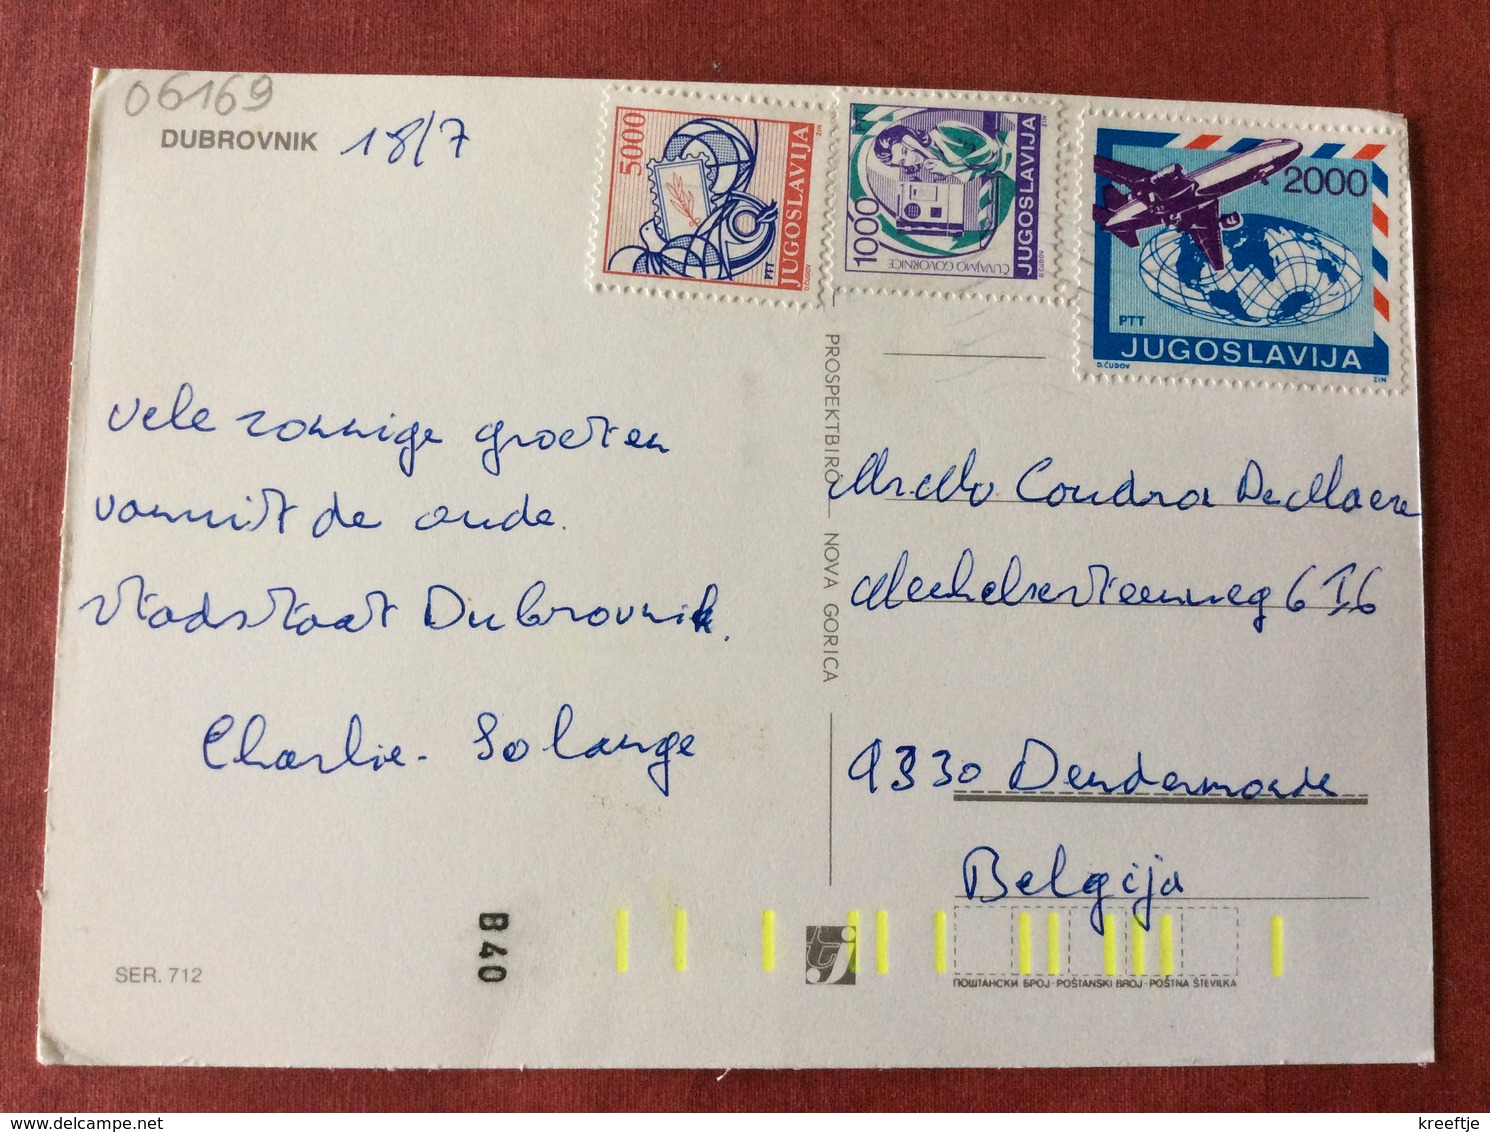 06169
DUBROVNIK 18/7
5000
JUGOSLAVIJA
PTT
D.ČUDOV
ZIN
PTT
1000
ČUVAJMO GOVORNICE
JUGOSLAVIJA
D.ČUDOV
ZIN
2000
PTT
JUGOSLAVIJA
D.ČUDOV
ZIN
vele zonnige groeten
vanuit de oude
stadstaat Dubrovnik.
Charlie - Solange
PROSPEKTBIRO NOVA GORICA
Condra DeMaere
Mechelsesteenweg 616
9330 Dendermonde
Belgija
B40
SER. 712
tj
ПОШТАНСКИ БРОЈ - POŠTANSKI BROJ - POŠTNA ŠTEVILKA
kreeftje